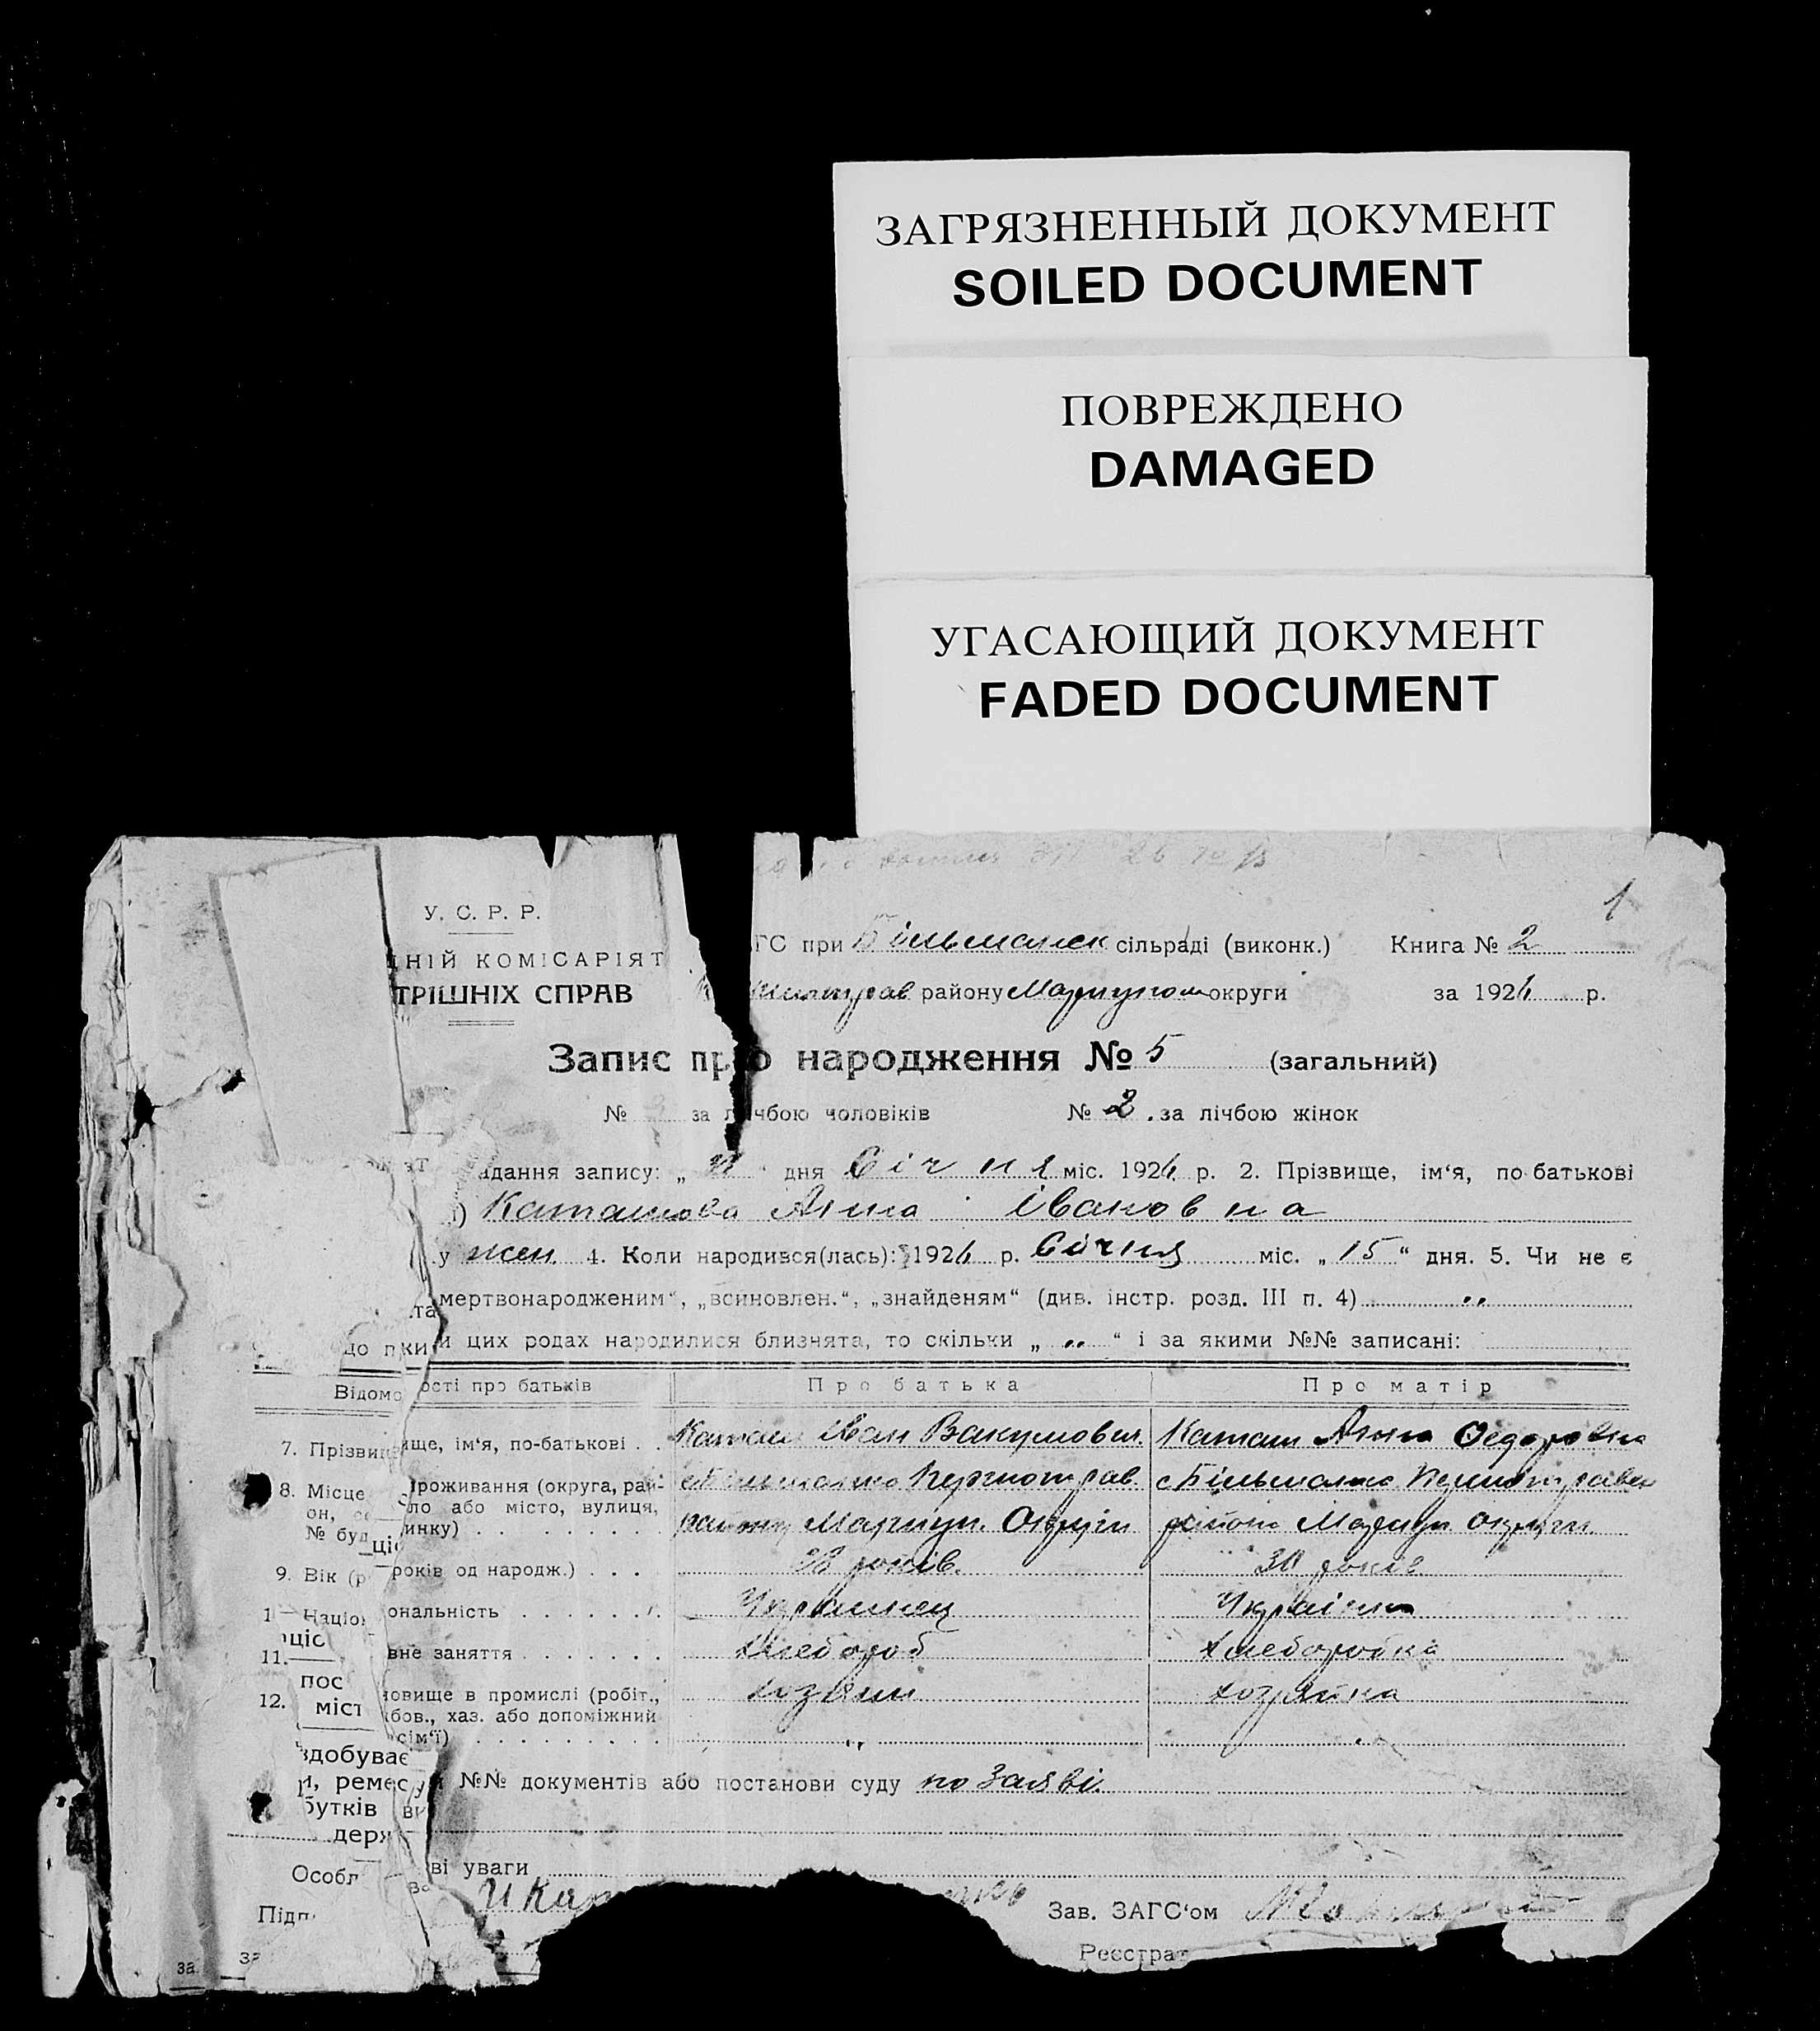 ЗАГРЯЗНЕННЫЙ ДОКУМЕНТ
SOILED DOCUMENT
ПОВРЕЖДЕНО
DAMAGED
УГАСАЮЩИЙ ДОКУМЕНТ
FADED DOCUMENT
1
У. С. Р. Р.
ГС при Більманск сільраді (виконк.) Книга № 2
ДНІЙ КОМІСАРІЯТ
ТРІШНІХ СПРАВ
району округи за 192 р.
Запис про народження № 5 (загальний)
№ за лічбою чоловіків № 2 за лічбою жінок
дання запису: „ “ дня Січня міс. 192 р. 2. Прізвище, ім‘я, по-батькові
Анна Івановна
у жен. 4. Коли народився(лась): 192 р. Січня міс. „ 15 “ дня. 5. Чи не є
мертвонародженим“, „всиновлен.“, „знайденям“ (див. інстр. розд. III п. 4)
цих родах народилися близнята, то скільки „ “ і за якими №№ записані:
Відомості про батьків Про батька Про матір
7. Прізвище, ім‘я, по-батькові Каташ Іван Вакумович Каташ Анна Федоровна
8. Місце проживання (округа, рай-
он, село або місто, вулиця, с Більманка
№ будинку) району Маріуп. Округи району Маріуп округи
9. Вік (років од народж.) 38 років. 30 років
Національність Українец Українка
11. вне заняття Хлебороб Хлеборобка
12. новище в промислі (робіт., Хозяин Хозяйка
бов., хаз. або допоміжний
сім‘ї)
здобуває
, ремес №№ документів або постанови суду по заяві.
бутків
держ
Особливі уваги
Підп
И Ка
Зав. ЗАГС‘ом
Реєстрат
за